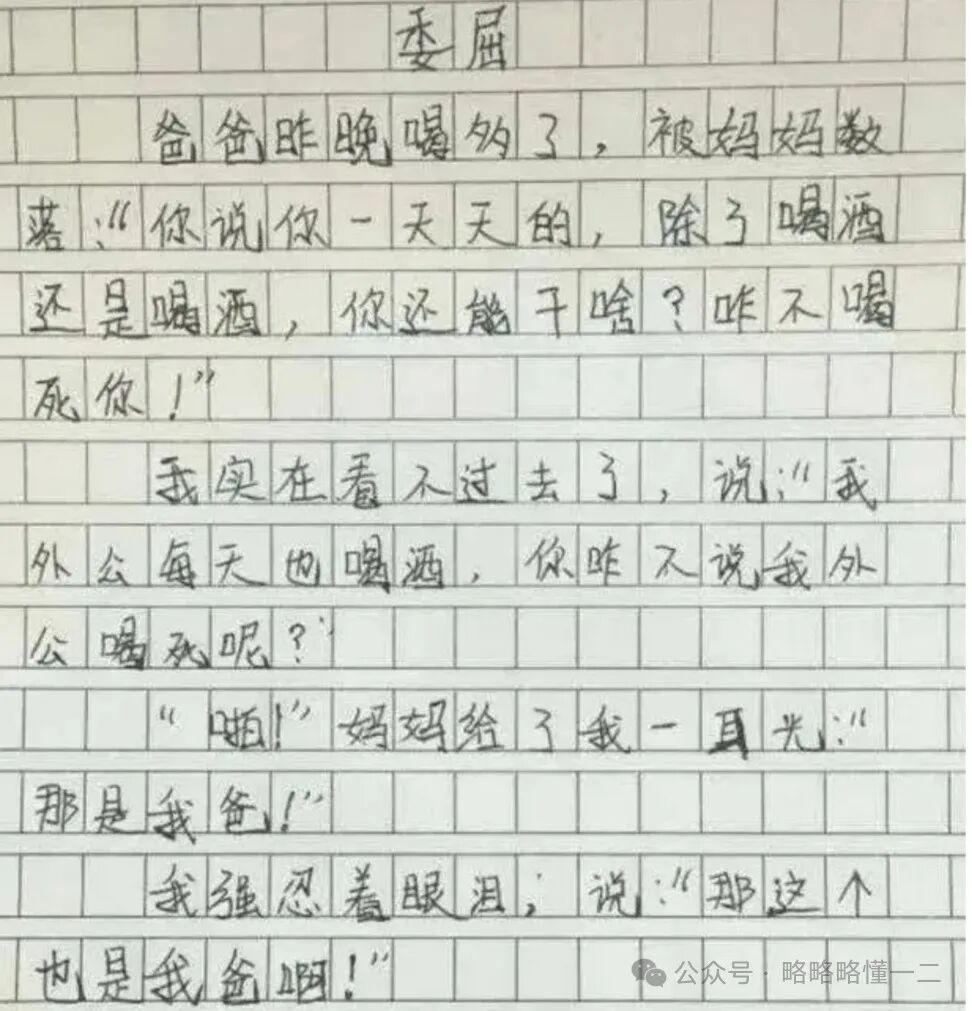 委屈
爸爸昨晚喝多了，被妈妈数
落："你说你一天天的，除了喝酒
还是喝酒，你还能干啥？咋不喝
死你！"
我实在看不过去了，说："我
外公每天也喝酒，你咋不说我外
公喝死呢？"
"啪！"妈妈给了我一耳光："
那是我爸！"
我强忍着眼泪，说："那这个
也是我爸啊！"
公众号·略略略懂一二